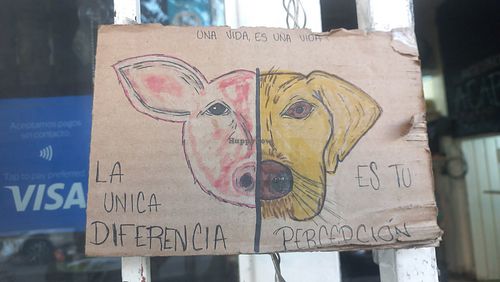 UNA VIDA, ES UNA VIDA
LA
UNICA
DIFERENCIA
ES TU
PERCEPCIÓN
Aceptamos pagos
sin contacto
Tap to pay
VISA
HappyCow